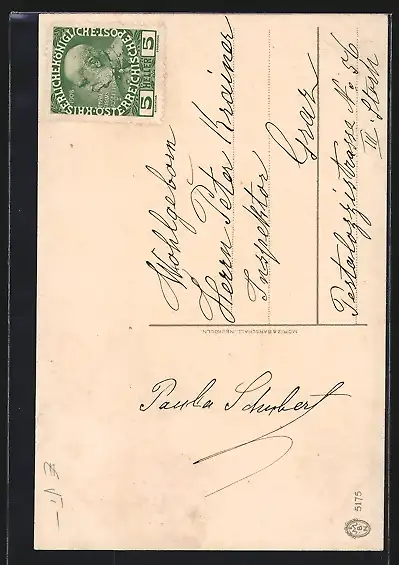 KAISERLICHE KÖNIGLICHE ÖSTERREICHISCHE POST
5 HELLER 5
Wohlgeborn
Herrn Peter Krainer
Inspektor
Graz
Pestalozzistrasse N. 56
III. Stock
Paula Schubert
5175